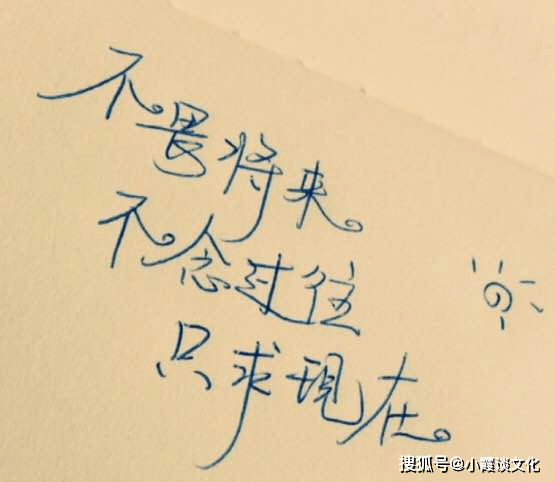 不畏将来
不念过往
只求现在
搜狐号@小霞谈文化